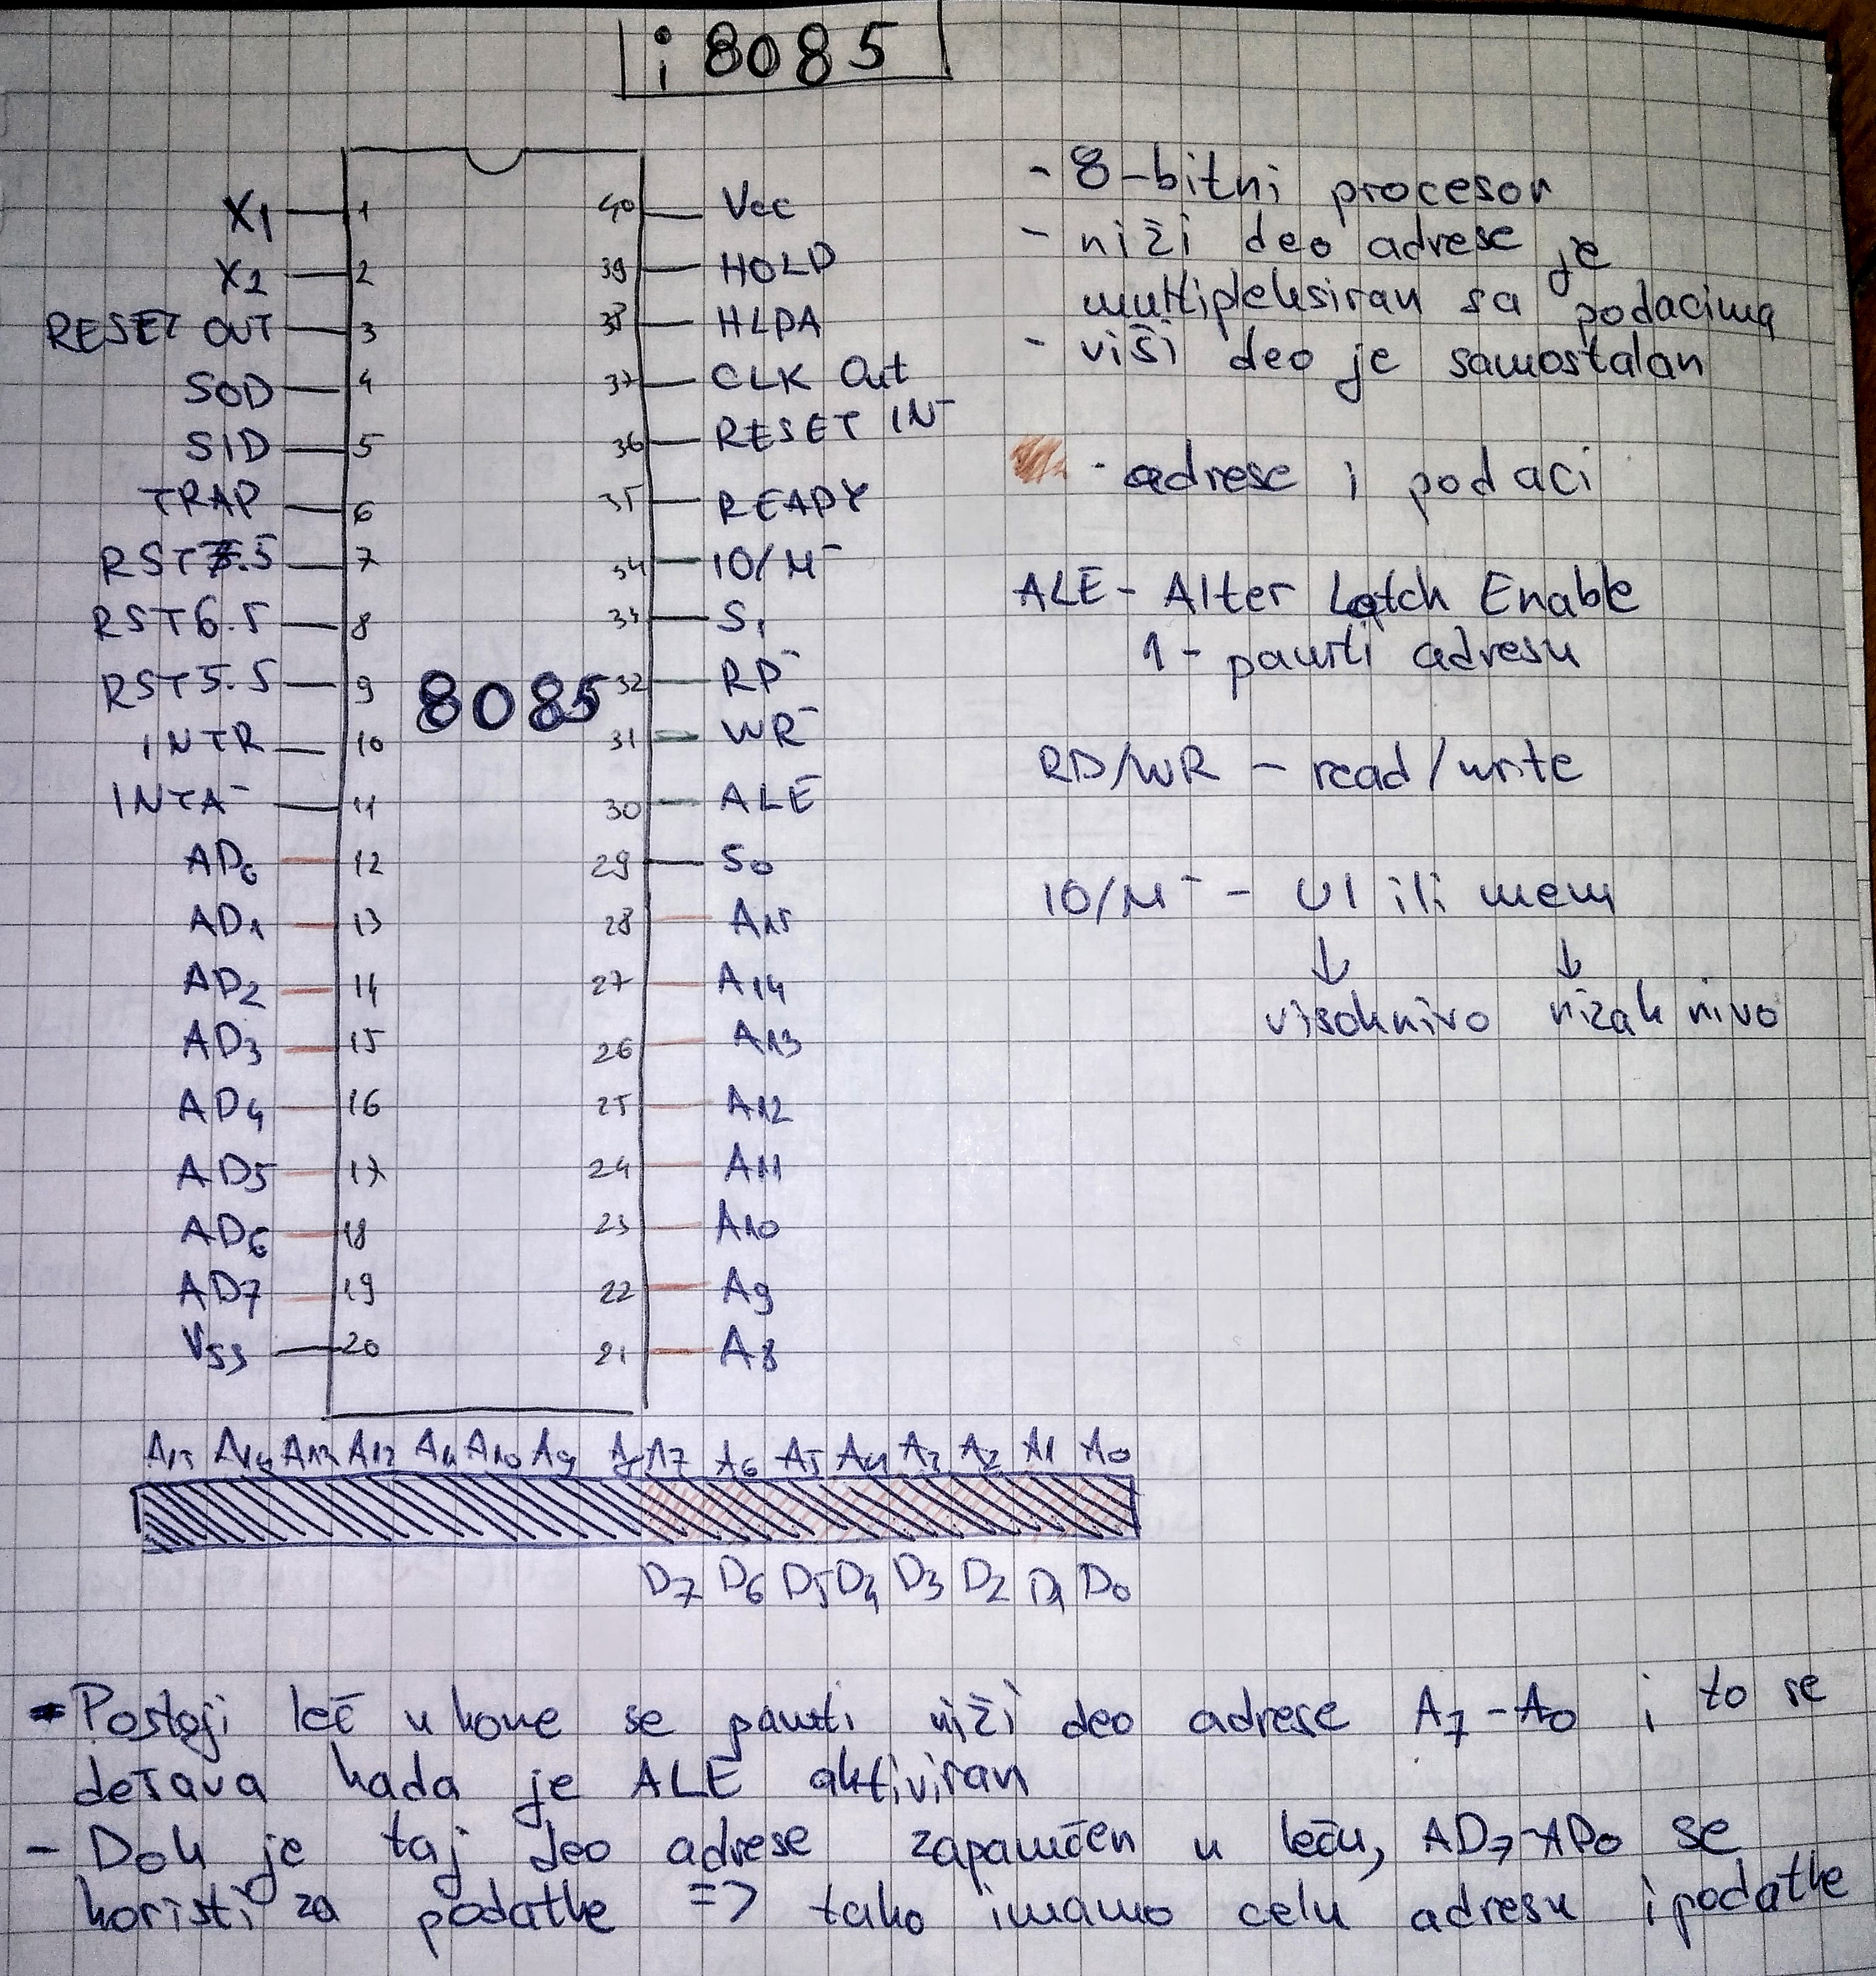 i8085
X1 1
X2 2
RESET OUT 3
SOD 4
SID 5
TRAP 6
RST7.5 7
RST6.5 8
RST5.5 9
INTR 10
INTA¯ 11
AD0 12
AD1 13
AD2 14
AD3 15
AD4 16
AD5 17
AD6 18
AD7 19
Vss 20
8085
40 Vcc
39 HOLD
38 HLDA
37 CLK Out
36 RESET IN¯
35 READY
34 IO/M¯
33 S1
32 RD¯
31 WR¯
30 ALE
29 S0
28 A15
27 A14
26 A13
25 A12
24 A11
23 A10
22 A9
21 A8
- 8-bitni procesor
- niži deo adrese je
multipleksiran sa podacima
- viši deo je samostalan
- adrese i podaci
ALE - Alter Latch Enable
1 - pamti adresu
RD/WR - read/write
IO/M¯ - UI ili mem
↓ ↓
visok nivo nizak nivo
A15 A14 A13 A12 A11 A10 A9 A8 A7 A6 A5 A4 A3 A2 A1 A0
D7 D6 D5 D4 D3 D2 D1 D0
- Postoji leč u kome se pamti niži deo adrese A7-A0 i to se
dešava kada je ALE aktiviran
- Dok je taj deo adrese zapamćen u leču, AD7-AD0 se
koristi za podatke => tako imamo celu adresu i podatke